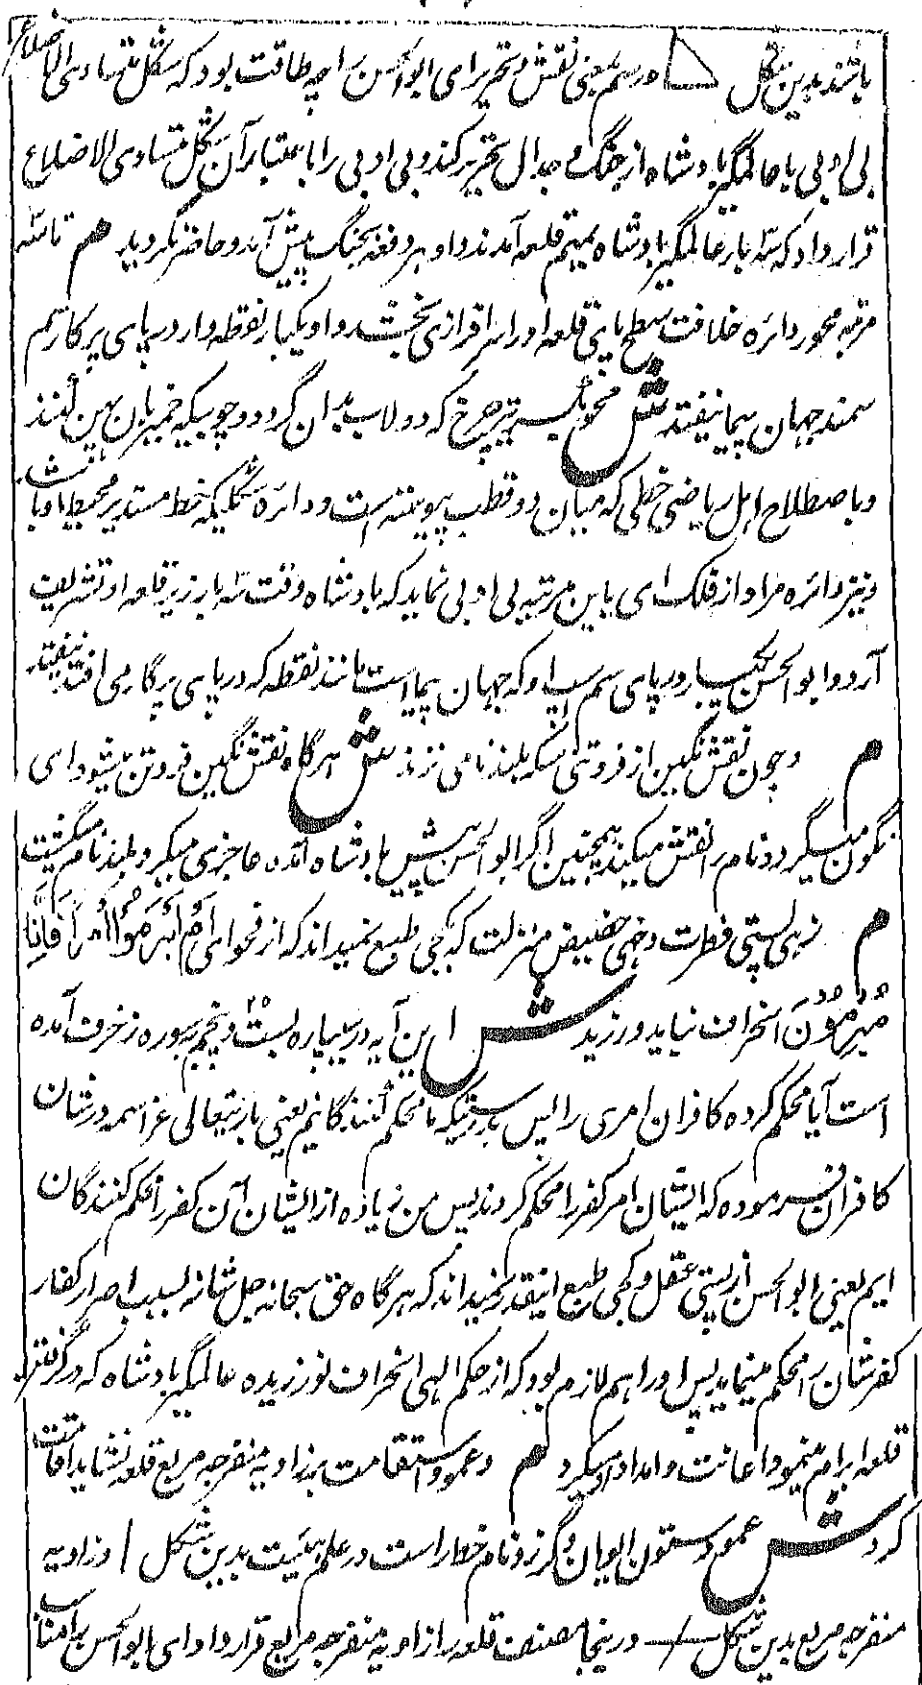 باشند بدین شکل و رسم یعنی نقش و تحریر ای ابوالحسن را چه طاقت بود که شکل متساوی الاضلاع
بی ادبی با عالمگیر بادشاه از جنگ و جدال تحریر کند و بی ادبی را باعتبار آن شکل متساوی الاضلاع
قرار داد که سه بار عالمگیر بادشاه بمهم قلعه آمدند و او هر دفعه بجنگ پیش آمد و حاضر نگردید م تا سه
مرتبه محور دائره خلافت سطح پائین قلعه او را سرافرازی بخشد و او یکبار نقطه وار در پای پرکار سم
سمند جهان پیما نیفتد ش محور تیر چرخ که دولاب بدان گردد و چوبیکه خمیر بان پهن کنند
و باصطلاح اهل ریاضی خطی که میان دو قطب پیوسته است و دائره شکلیکه خط مستدیر محیط او باشد
و نیز دائره مراد از فلک ای باین مرتبه بی ادبی نماید که بادشاه وقت سه بار زیر قلعه او تشریف
آرد و ابوالحسن یکبار در پای سم اسپ او که جهان پیما است مانند نقطه که در پای پرگار می افتد نیفتد
م و چون نقش نگین از فروتنی سکه بلند نامی نزند ش هرگاه نقش نگین فروتن میشود ای
نگون میگردد نام را نقش میکند همچنین اگر ابوالحسن پیش بادشاه آمده عاجزی میکرد بلند نام میگشت
م زهی پستی فطرت و خهی حضیض منزلت که بکجی طبع نمیداند که از فحوای أَمْ أَبْرَمُوا أَمْراً فَإِنَّا
مُبْرِمُونَ انحراف نباید ورزید ش این آیه در سیپاره بست و پنجم ۲۵ بسوره زخرف آمده
است آیا محکم کرده کافران امری را پس بدرستیکه ما محکم کنندگانیم یعنی باریتعالی عز اسمه در شان
کافران فرموده که ایشان امر کفر را محکم کردند پس من زیاده از ایشان آن کفر را محکم کنندگان
ایم یعنی ابوالحسن از پستی عقل و کجی طبع اینقدر نمیداند که هرگاه حق سبحانه جل شانه بسبب اصرار کفار
کفر شان را محکم مینماید پس او را هم لازم بود که از حکم الهی انحراف نورزیده عالمگیر بادشاه که در گرفتن
قلعه ابرام مینمود اعانت و امداد او میکرد م و عمود استقامت بر زاویه منفرجه مربع قلعه نشاید اقامت
کرد ش عمود ستون ایوان و گرز و نام خط راست در علم هیئت بدین شکل | و زاویه
منفرجه مربع بدین شکل و درینجا مصنف قلعه را زاویه منفرجه مربع قرار داد ای با ابوالحسن